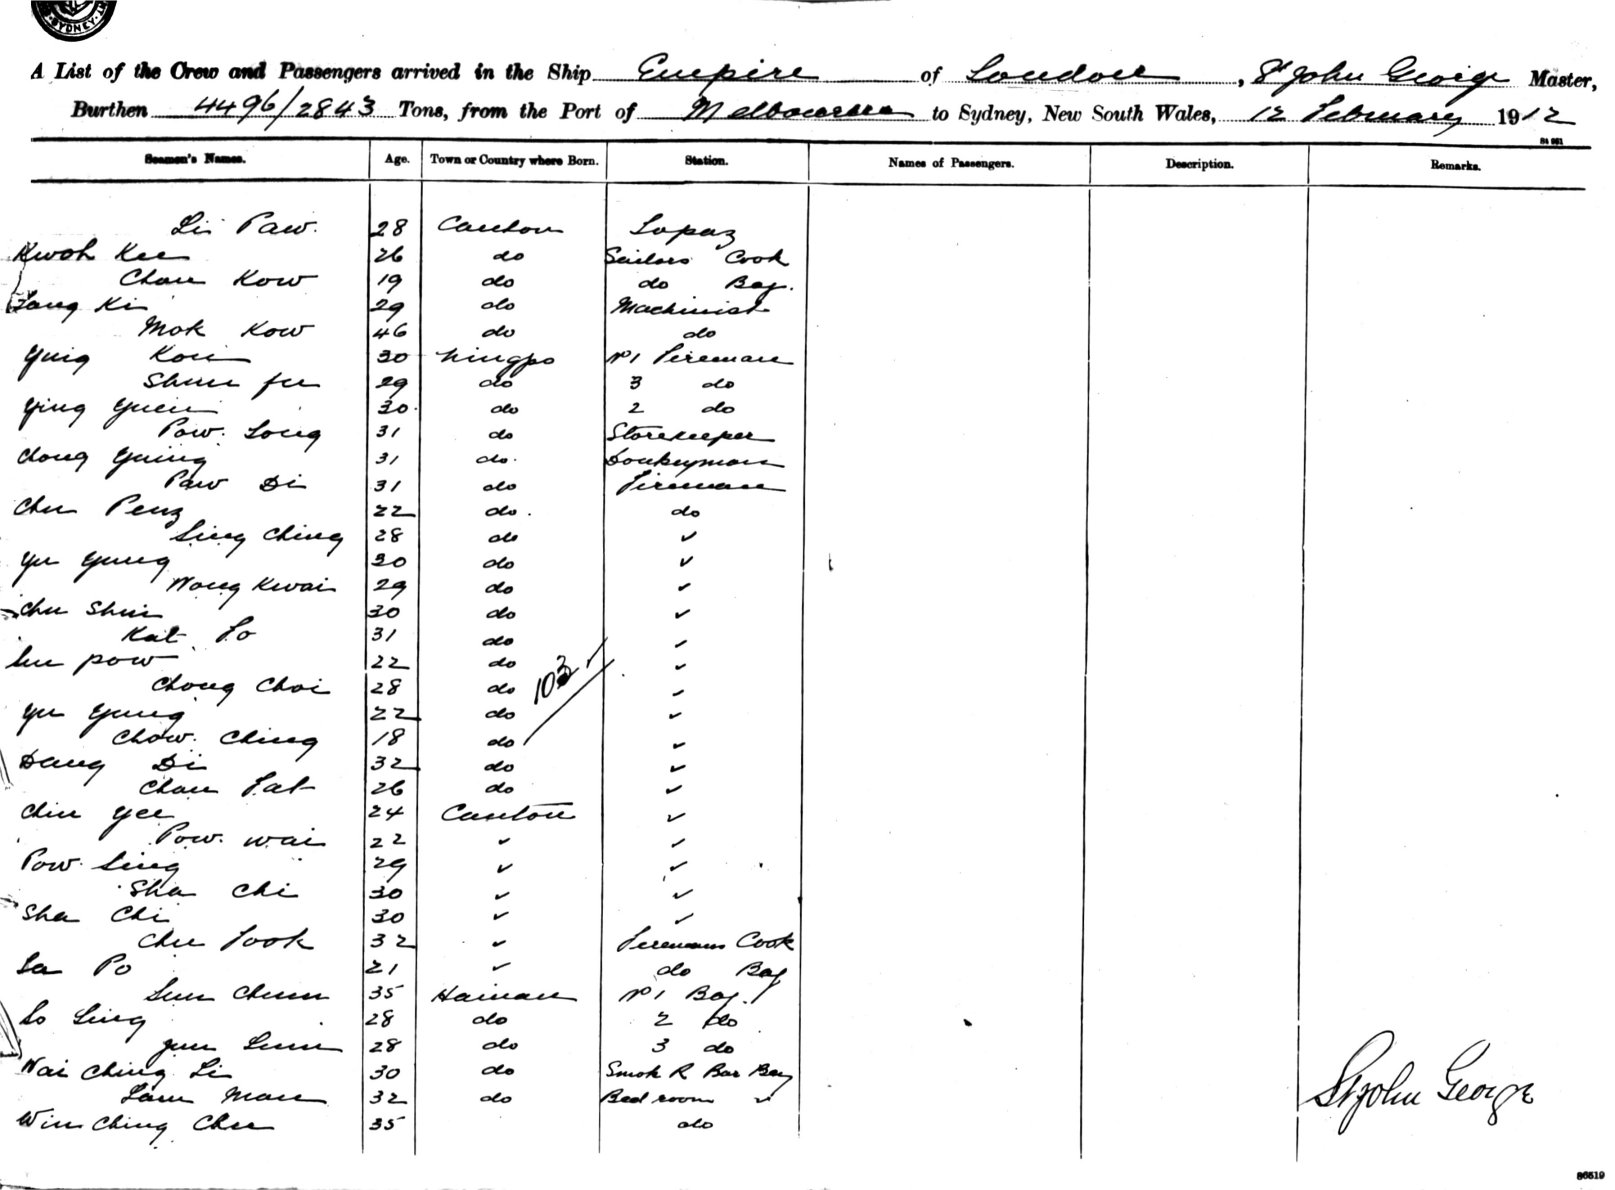 SYDNEY
A List of the Crew and Passengers arrived in the Ship Empire of London, St John George Master,
Burthen 4496/2843 Tons, from the Port of Melbourne to Sydney, New South Wales, 12 February 1912
Seamen's Names. Age. Town or Country where Born. Station. Names of Passengers. Description. Remarks.
Li Paw. 28 Canton Lopaz
Kwoh Kee 26 do Sailors Cook
Chan Kow 19 do do Boy.
Tang Ki 29 do Machinist
Mok Kow 46 do do
Ying Kow 30 Ningpo No 1 Fireman
Shun fu 29 do 3 do
Ying Yuen 30 do 2 do
Pow Long 31 do Storekeeper
Chong Yuing 31 do Donkeyman
Paw Di 31 do Fireman
Chu Peng 22 do do
Sing Ching 28 do ✓
Yu Yung 30 do ✓
Wong Kwai 29 do ✓
Chu Shui 30 do ✓
Kat Fo 31 do ✓
pow 22 do ✓
Chong Choi 28 do ✓
103 ✓
Yu Yung 22 do ✓
Chow Ching 18 do ✓
Dang Di 32 do ✓
Chan Fat 26 do ✓
Chin Yee 24 Canton ✓
Pow wai 22 ✓ ✓
Pow Sing 29 ✓ ✓
Sha Chi 30 ✓ ✓
Sha Chi 30 ✓ ✓
Chu Fook 32 ✓ Firemans Cook
La Po 21 ✓ do Boy
Sun Chun 35 Hainan No 1 Boy.
So Sing 28 do 2 do
Lum 28 do 3 do
Wai Ching Li 30 do Smok R Bar Boy
Lam Man 32 do Bed room ✓
Win Ching Chu 35 do
St John George
86519